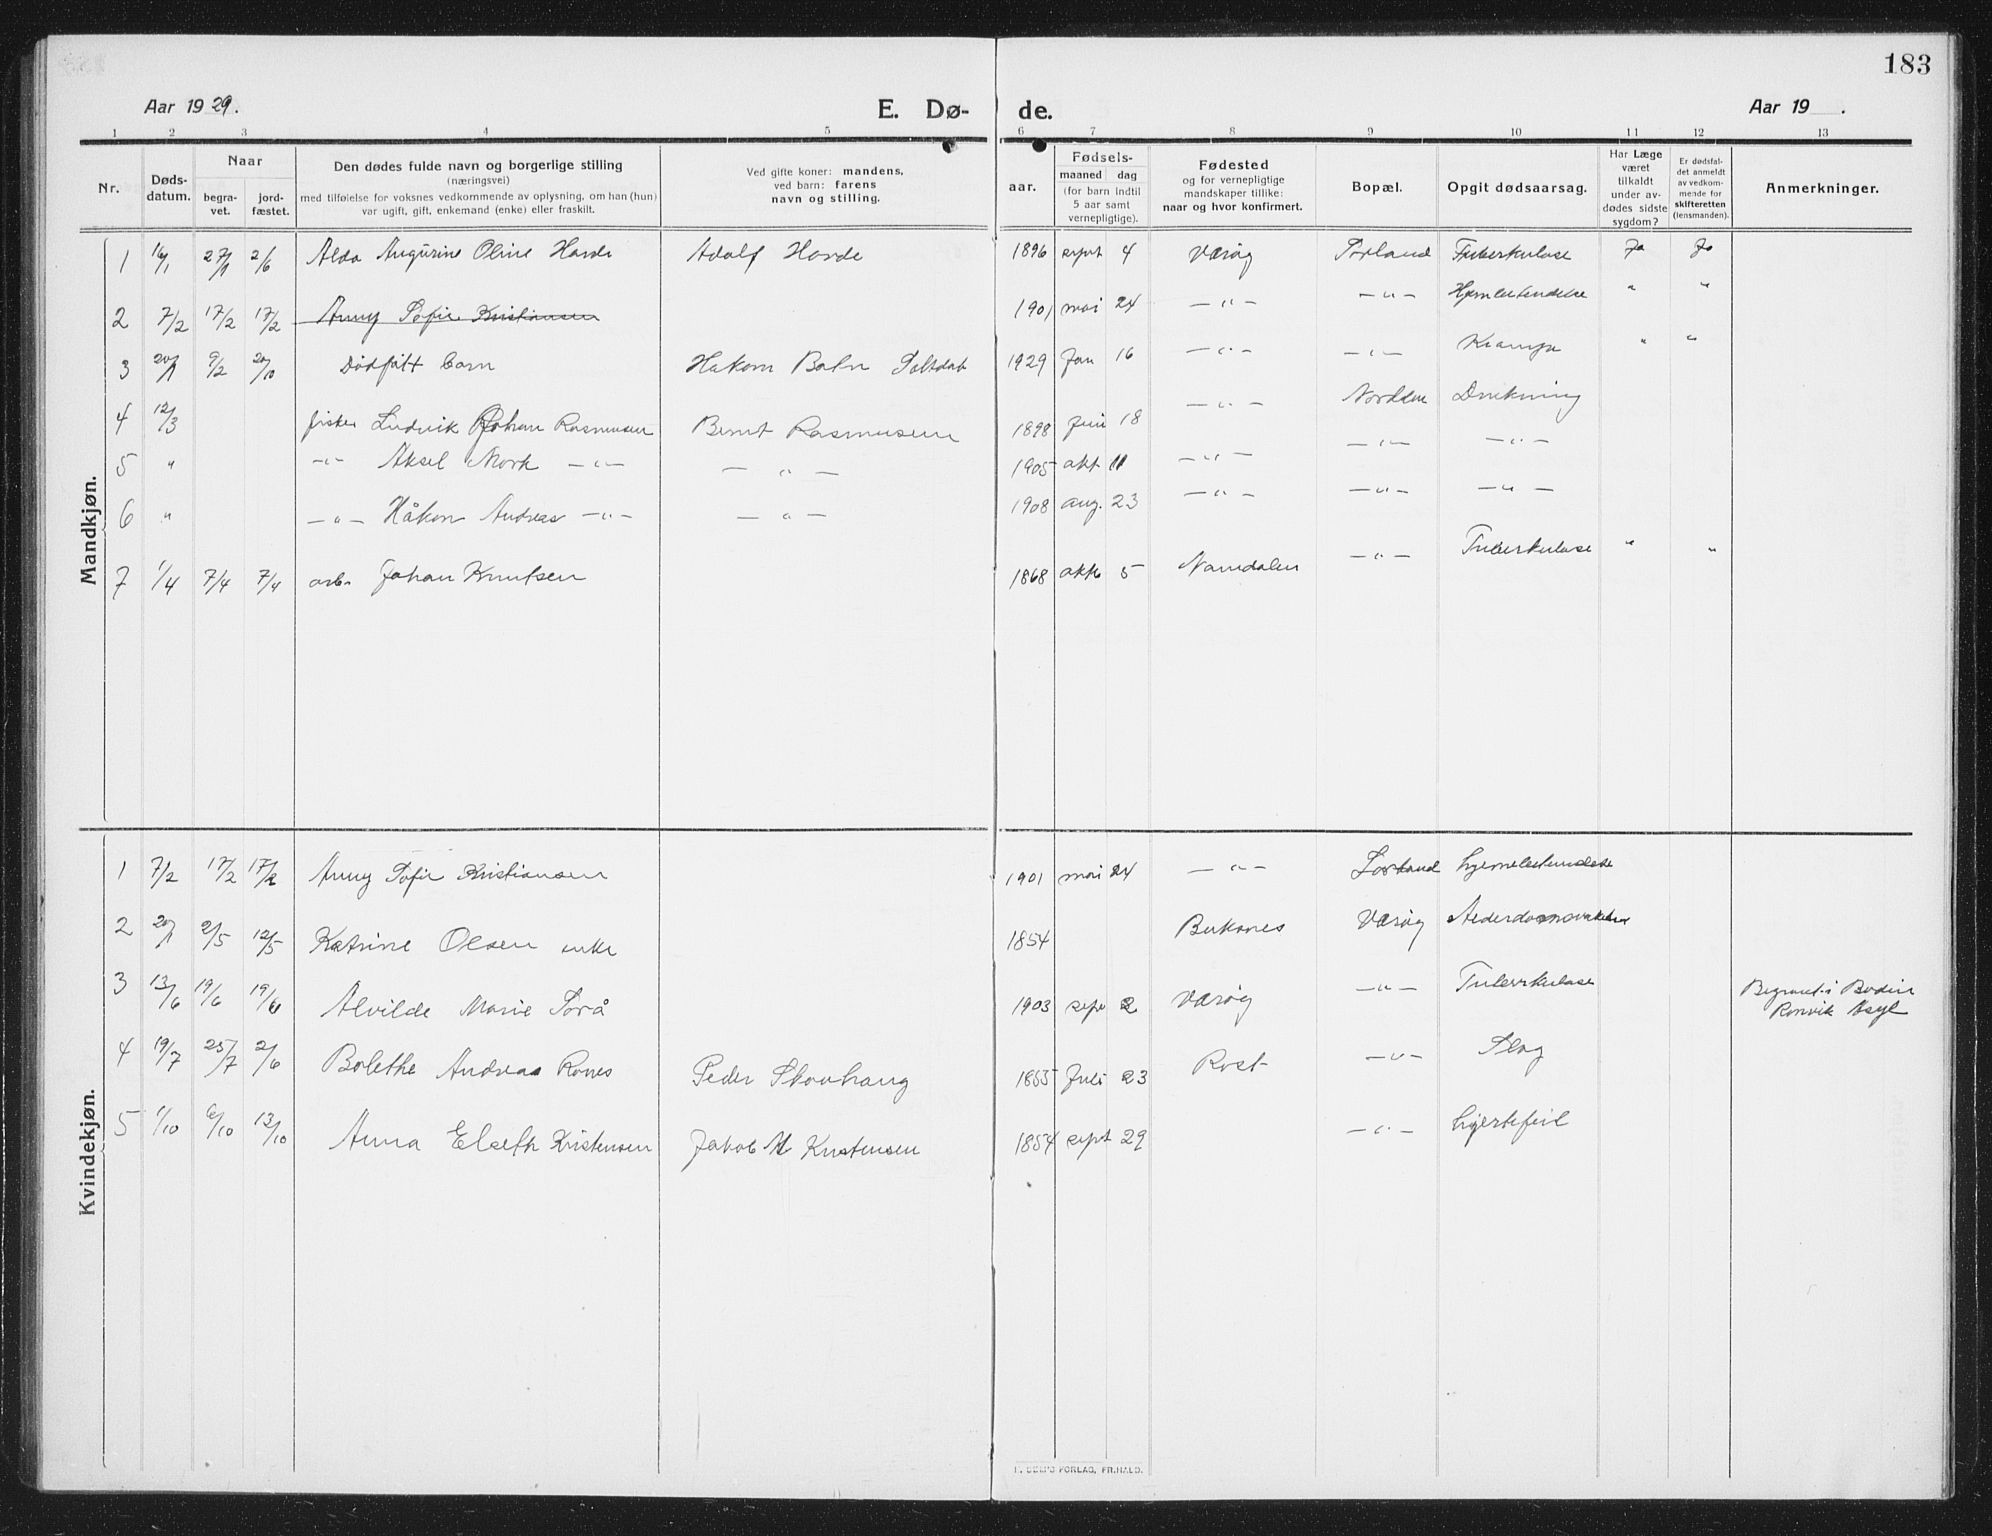 183
Aar 1929.
E. Dø-
de.
Aar 19 .
1 2 3 4 5 6 7 8 9 10 11 12 13
Nr.
Døds-
datum.
Naar
begra-
vet.
jord-
fæstet.
Den dødes fulde navn og borgerlige stilling
(næringsvei)
med tilføielse for voksnes vedkommende av oplysning, om han (hun)
var ugift, gift, enkemand (enke) eller fraskilt.
Ved gifte koner: mandens,
ved barn: farens
navn og stilling.
aar.
Fødsels-
maaned dag
(for barn indtil
5 aar samt
vernepligtige).
Fødested
og for vernepligtige
mandskaper tillike:
naar og hvor konfirmert.
Bopæl.
Opgit dødsaarsag.
Har Læge
været
tilkaldt
under av-
dødes sidste
sygdom?
Er dødsfal-
det anmeldt
av vedkom-
mende for
skifteretten
(lensmanden).
Anmerkninger.
Mandkjøn.
1 16/1 27/1 2/6 Alda Augusine Oline Havde Adolf Havde 1896 sept 4 Værøy Sørland Tuberkulose Ja Ja
2 7/2 17/2 17/2 Anny Sofie Kristiansen 1901 mai 24 — " — — " — " "
3 20/1 9/2 20/10 Dødfødt barn Hakon 1929 Jan 16 — " — — " — " "
4 12/3 fisker Ludvik Johan Rasmussen Bernt Rasmussen 1898 Juni 18 — " — Nordden Drukning
5 " — " — Aksel Mork — " — — " — 1905 okt 11 — " — — " — — " —
6 " — " — Håkon Andreas — " — — " — 1908 aug. 23 — " — — " — — " —
7 1/4 7/4 7/4 arb. Johan Knutsen 1868 okt 5 Namdalen — " — Tuberkulose " "
Kvindekjøn.
1 7/2 17/2 17/2 Anny Sofie Kristiansen 1901 mai 24 — " — Sørland
2 20/1 2/5 12/5 Katrine Olsen enke 1854 Buksnes Værøy
3 13/6 19/6 19/6 Alvilde Marie Sørå 1903 sept 2 Værøy — " — Tuberkulose Begravet i Bodin
Rønvik Asyl
4 19/7 25/7 2/6 Bolethe Andrea Rønes Peder Skovhaug 1865 Juli 23 Røst — " — Slag
5 1/10 6/10 13/10 Anna Elseth Kristensen Jakob M Kristensen 1854 sept 29 — " — hjertefeil
FORLAG, FR.HALD.